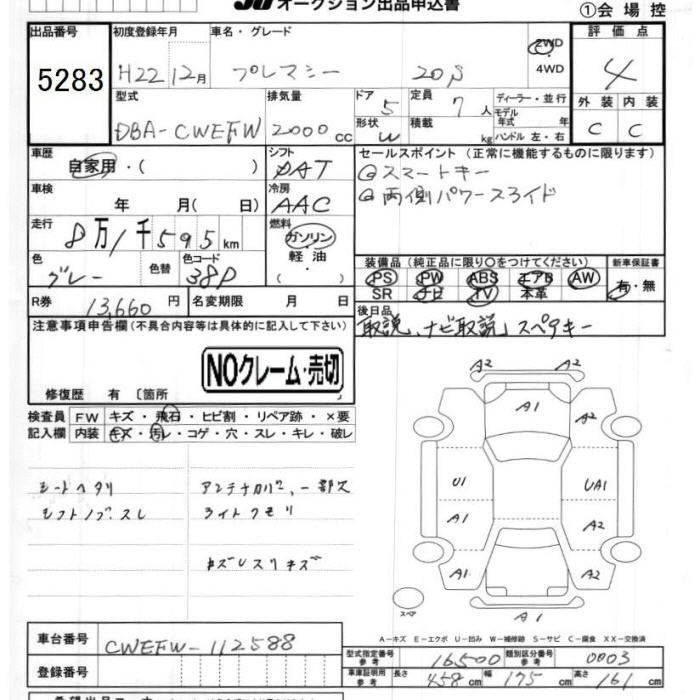 JU オークション出品申込書
①会場控
出品番号
5283
初度登録年月
H22 12月
車名・グレード
プレマシー 20S
2WD
4WD
評価点
4
型式
DBA-CWEFW
排気量
2000 cc
ドア 5
形状 W
定員 7 人
積載 kg
ディーラー・並行
モデル年式 年
ハンドル 左・右
外装 内装
C C
車歴
自家用・( )
シフト
DAT
セールスポイント (正常に機能するものに限ります)
スマートキー
両側パワースライド
車検
年 月( 日)
冷房
AAC
走行
8万1千595km
燃料
ガソリン
軽油
( )
色
グレー
色替
色コード
38P
装備品(純正品に限り○をつけてください)
PS PW ABS エアB AW
SR ナビ TV 本革
新車保証書
有・無
R券 13,660 円
名変期限 月 日
後日品
取説、ナビ取説、スペアキー
注意事項申告欄(不具合内容等は具体的に記入して下さい)
NOクレーム・売切
修復歴 有 〔箇所
検査員記入欄
FW キズ・飛石・ヒビ割・リペア跡・×要
内装 キズ・汚レ・コゲ・穴・スレ・キレ・破レ
シートヘタリ
シフトノブスレ
ライトクモリ
キズUスリキズ
A2 A2
A1
A2 A2
U1 UA1
A1 A2
A1 A2
スペア
A1
A-キズ E-エクボ U-凹み W-補修跡 S-サビ C-腐食 XX-交換済
車台番号 CWEFW-112588
登録番号
型式指定番号 参考 16500
類別区分番号 参考 0003
車庫証明用 参考 長さ 458 cm 幅 175 cm 高さ 161 cm